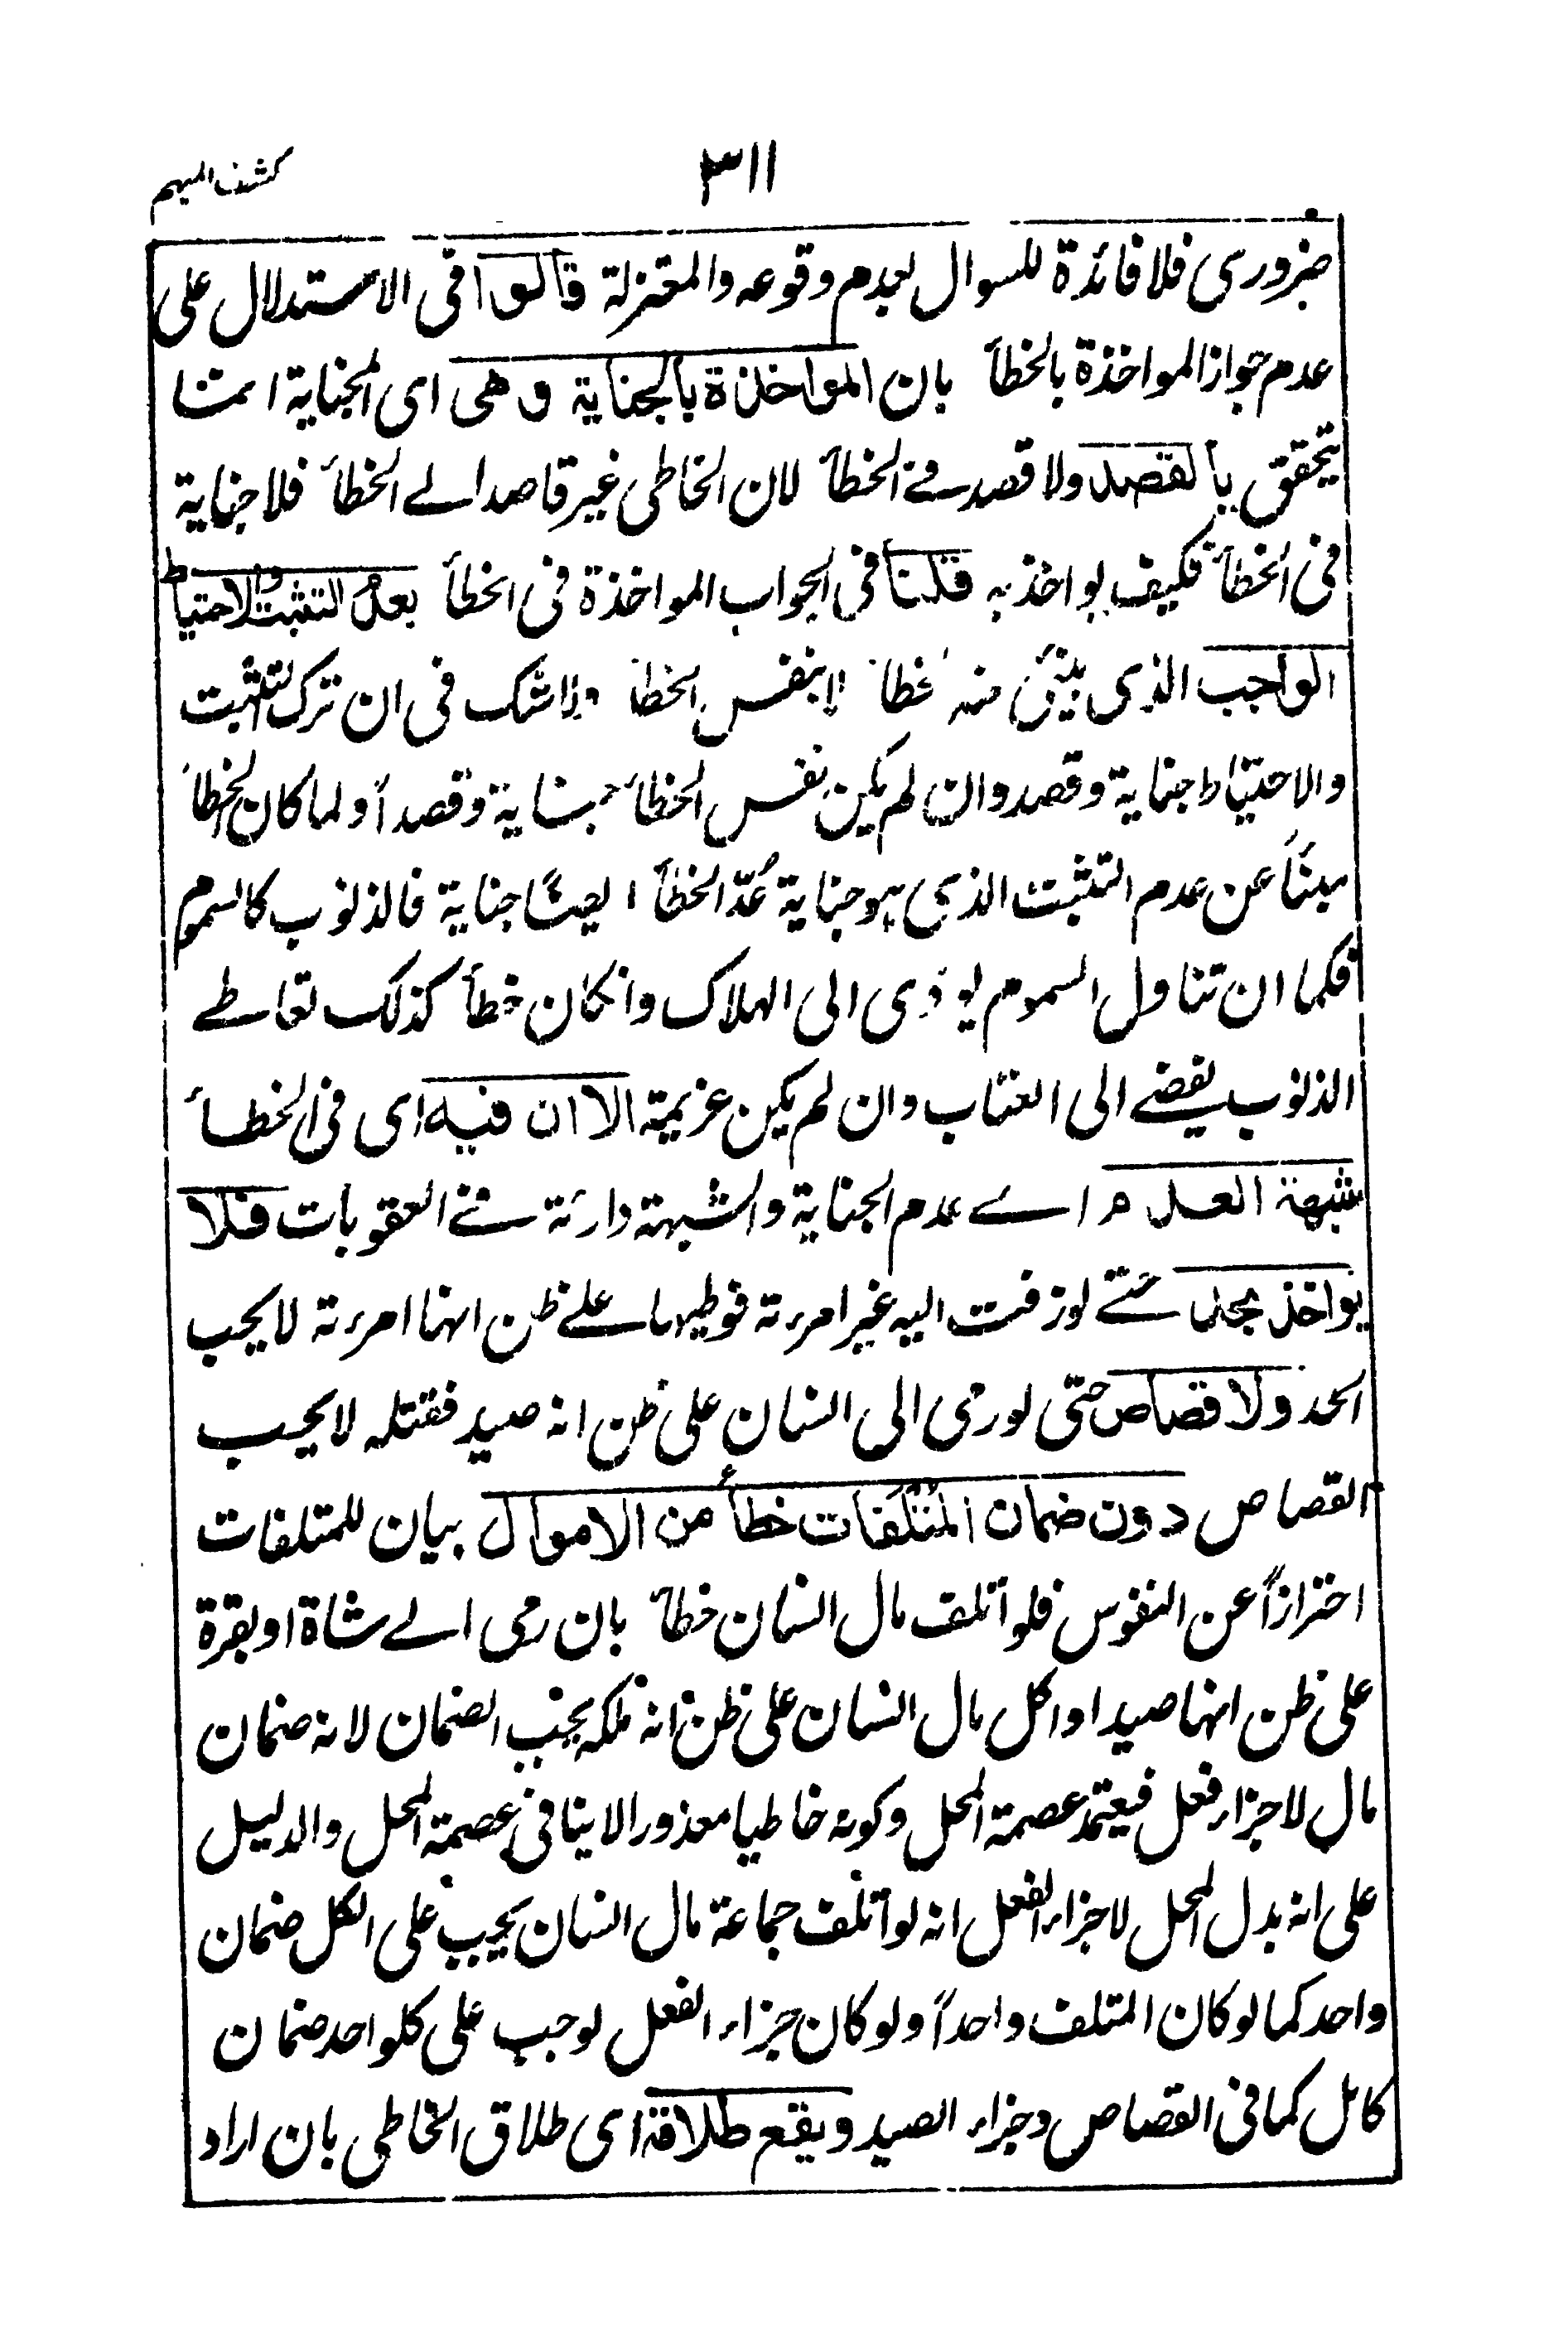 كشف المبهم
٣١١
ضروری فلا فائدة للسوال لعدم وقوعه والمعتزلة قالوا فی الاستدلال علی
عدم جواز المواخذة بالخطأ بان المواخذة بالجناية وهی ای الجناية انما
يتحقق بالقصد ولا قصد فے الخطأ لان الخاطی غير قاصد الے الخطأ فلا جناية
فی الخطأ فكيف يواخذ به قلنا فی الجواب المواخذة فی الخطأ بعدم التثبت والاحتياط
الواجب الذی ينبئ منه خطأ لا بنفس الخطأ ولا شك فی ان ترك التثبت
والاحتياط جناية وقصد وان لم يكن نفس الخطأ جناية وقصداً ولما كان الخطأ
مبنئاً عن عدم التثبت الذی هو جناية عُدّ الخطأ ايضًا جناية فالذنوب كالسموم
فكما ان تناول السموم يوذی الی الهلاك وانكان خطأ كذلك تعاطے
الذنوب يفضے الی العقاب وان لم يكن عزيمة الا ان فيه ای فی الخطأ
شبهة العدم اے عدم الجناية والشبهة دارئة فے العقوبات فلا
يواخذ بحد حتے لو زفت اليه غير امرءته فوطيها علے ظن انها امرءته لا يجب
الحد ولا قصاص حتی لو رمی الی انسان علی ظن انه صيد فقتله لا يجب
القصاص دون ضمان المُتْلَفات خطأً من الاموال بيان للمتلفات
احترازاً عن النفوس فلو أتلف مال انسان خطأ بان رمی الے شاة او بقرة
علی ظن انها صيد او اكل مال انسان علی ظن انه ملكه يجب الضمان لانه ضمان
مال لا جزاء فعل فيعتمد عصمة المحل وكونه خاطيا معذورا لا ينافی عصمة المحل والدليل
علی انه بدل المحل لا جزاء الفعل انه لو أتلف جماعة مال انسان يجب علی الكل ضمان
واحد كما لو كان المتلف واحداً ولو كان جزاء الفعل لوجب علی كلواحد ضمان
كامل كما فی القصاص وجزاء الصيد ويقع طلاقه ای طلاق الخاطی بان اراد